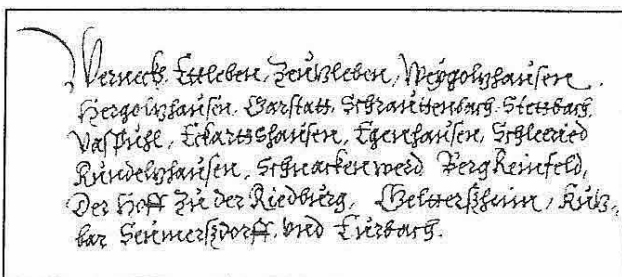 Werneck. Ettleben, Zeutzleben, Weygoltzhausen.
Hergoltzhausen. Garstatt. Schrauttenbach. Stettbach.
Vaspühl, Eckartshausen, Egenhausen, Schleeried
Kündeltzhausen, Schnackenwerd Bergkeinfeld,
Der Hoff zu der Riedburg, Geltterßheim, Kütz-
bar Seümerßdorff. Vnd Eurbach.